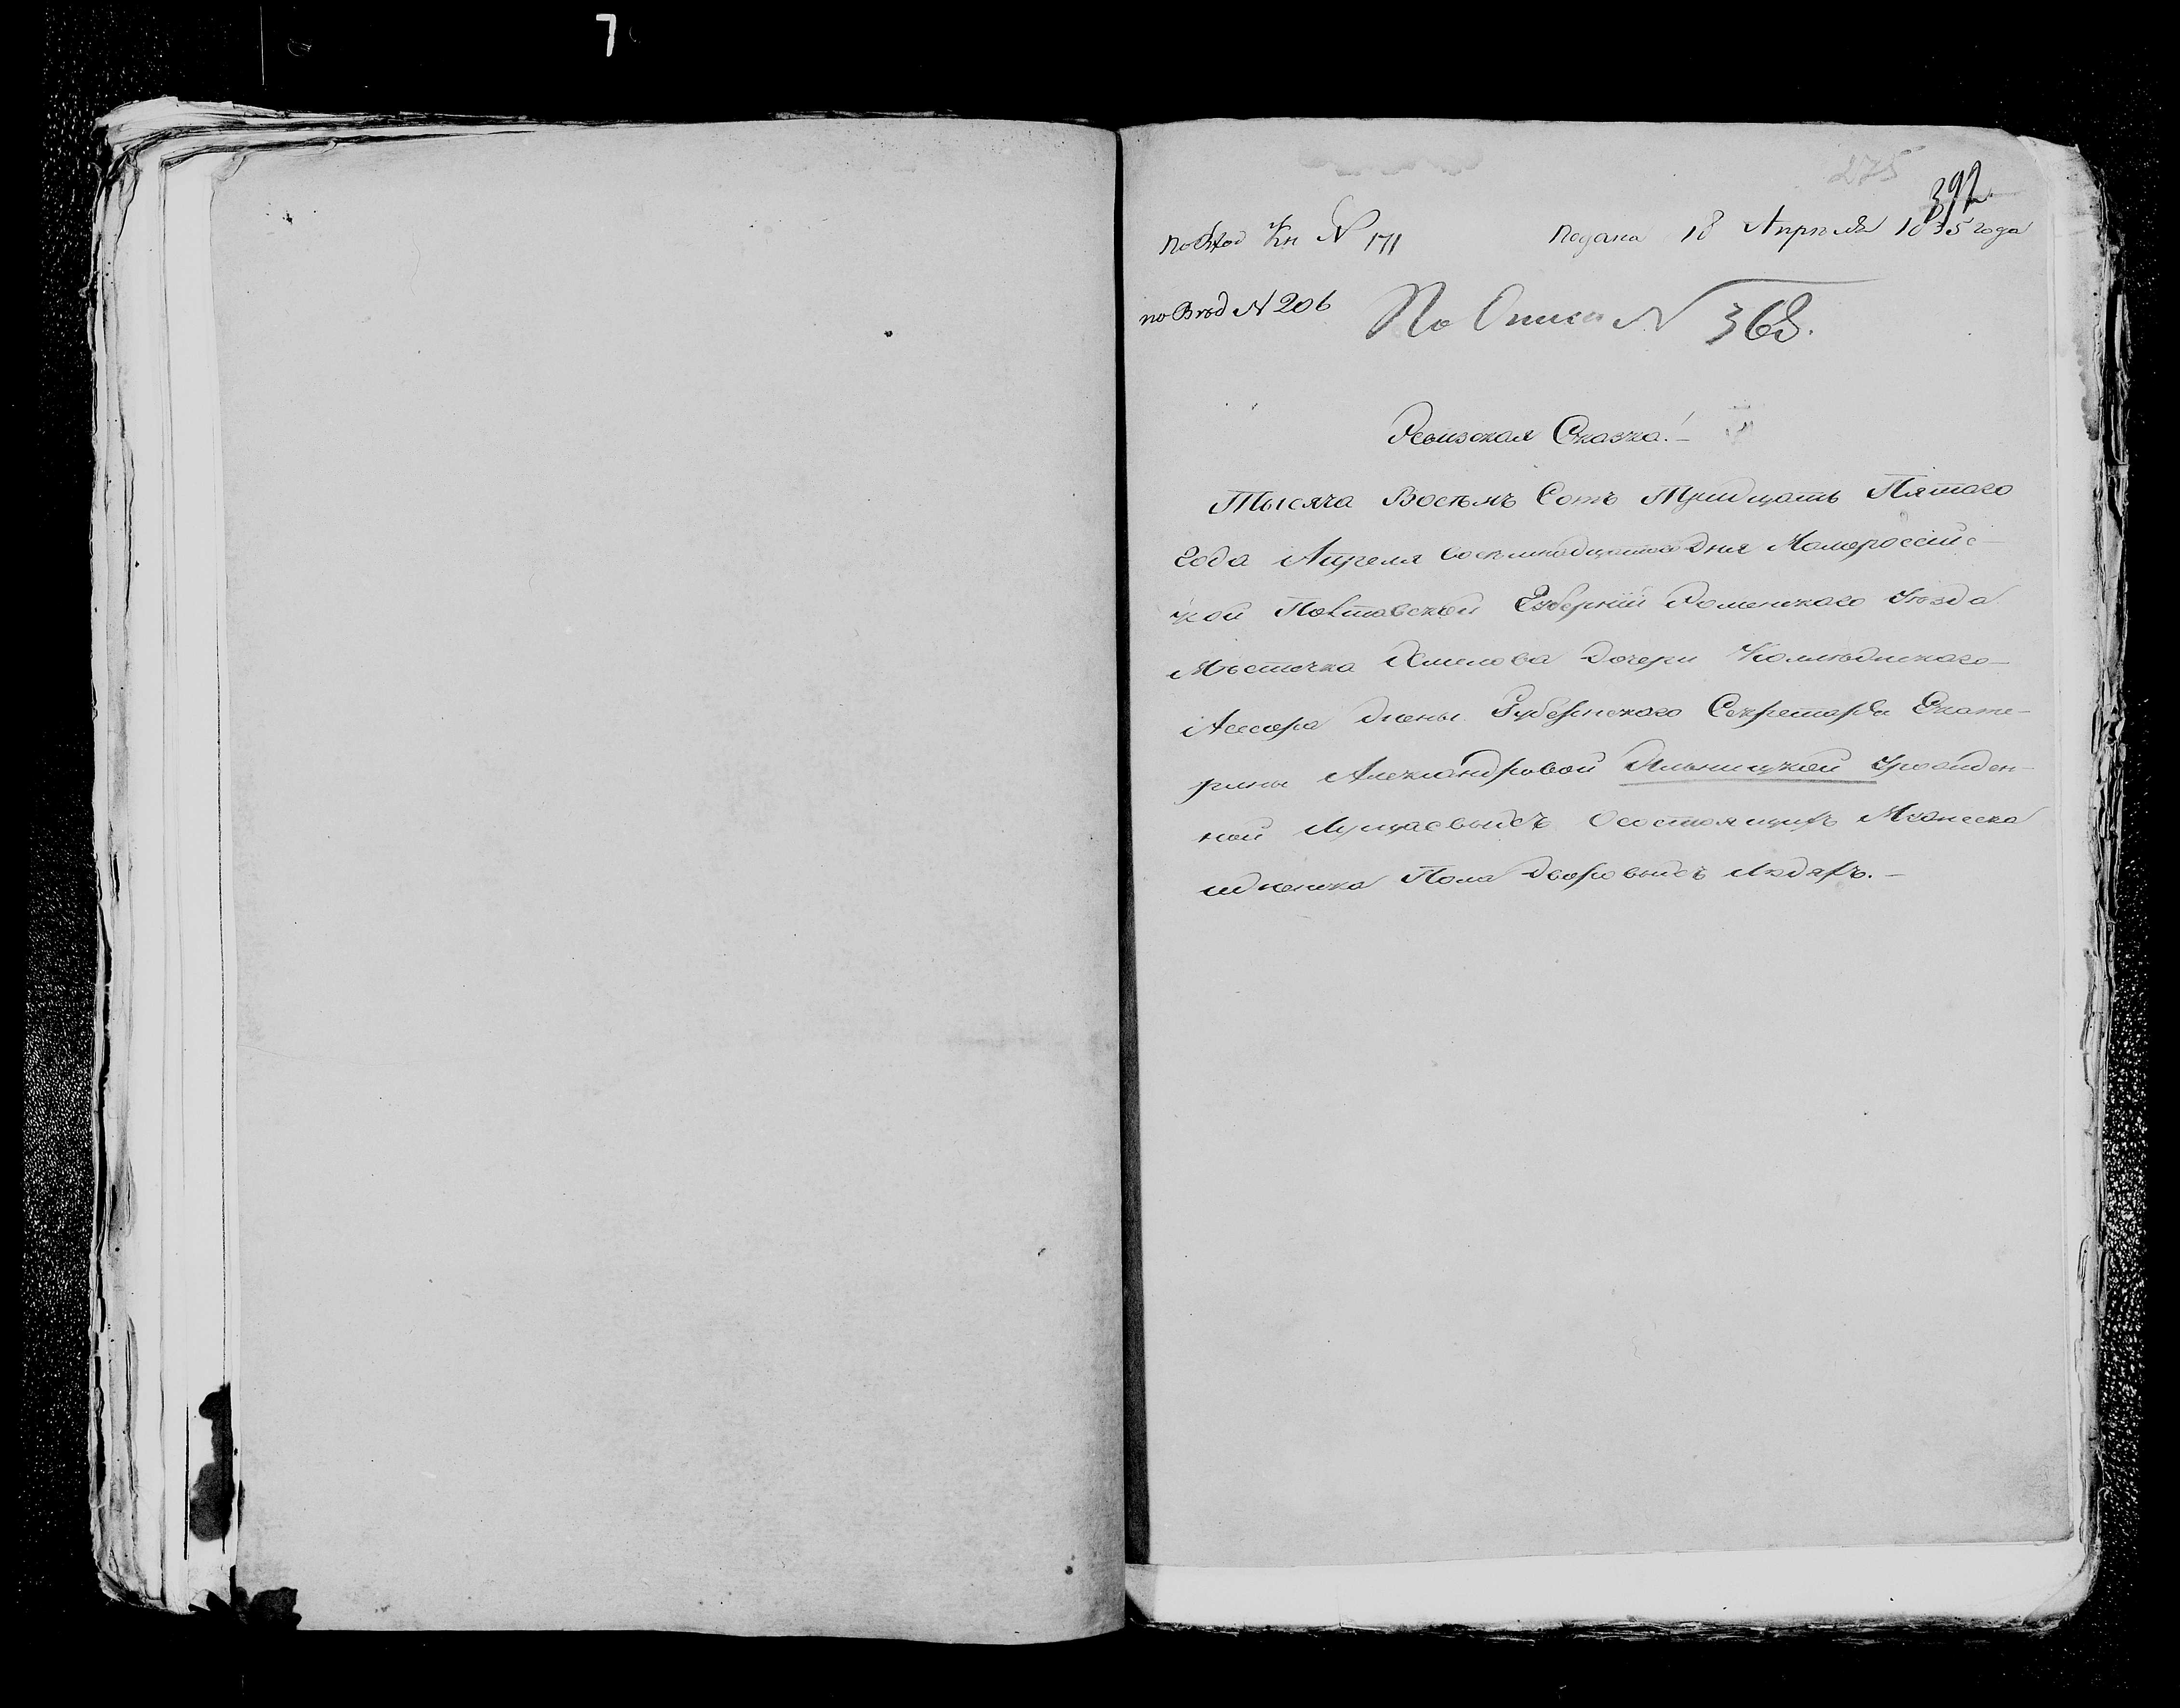 7
275
392
По Вход Кн № 171
Подана 18 Апреля 1835 года
по Вход № 206
По Описи № 368.
Ревизская Сказка!
Тысяча Восемь Сотъ Тридцать Пятого
Года Апреля восемнадцатого дня Малороссийс-
кой Полтавской Губернии Роменского Уезда
Местечка Хмелова Дочери Коллежского
Асессора жены Губернского Секретаря Екате-
рины Александровой Ильницкой Урожден-
ной О состоящихъ Мужеска
и женска Пола дворовыхъ Людяхъ.